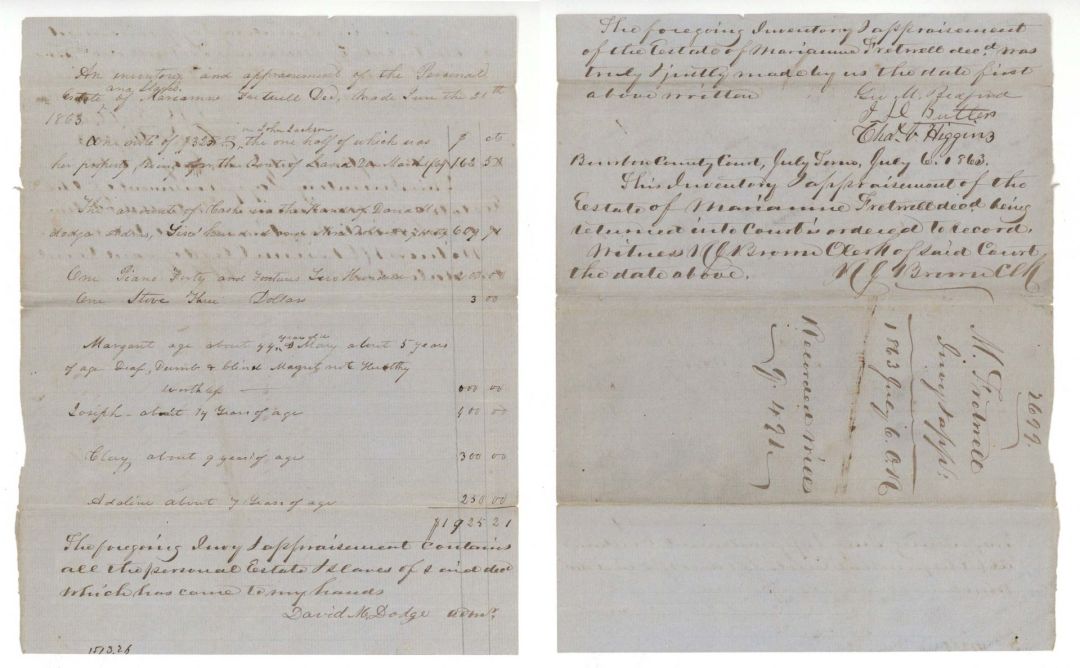 An inventory and appraisement of the Personal
and Slaves
Estate of Marianne Fretwell Decd, Made June the 21th
1863
in John Jackson
One note of $325 the one half of which was $ cts
her property, Being for the of David 21 March 162 5
The amount of Cash in the Hands of David M
dodge Admr, Six hundred and 609
One Piano Forty and Two Hundred 200 00
One Stove Three Dollars 3 00
years old
Margaret age about 44 & Mary about 5 years
of age Deaf, Dumb & blind Margret not Healthy
worth 000 00
Joseph - about 14 Years of age 400 00
Clay about 9 years of age 300 00
Adaline about 7 Years of age 250 00
$1925 21
The foregoing Invy & appraisement contains
all the personal Estate & Slaves of said decd
which has come to my hands
David M Dodge admr.
1513.26
The foregoing Inventory & appraisement
of the Estate of Marianne Fretwell decd was
truly & justly made by us the date first
above written Geo. M. Bedford
J D Butler
Chas. V. Higgins
Bourbon County Court, July Term, July 6. 1863.
This Inventory & appraisement of the
Estate of Marianne Fretwell decd being
returned into Court is ordered to record.
Witness Clerk of said Court
the date above. Clk
2699.
M. Fretwell
Invy & appt
1863 July 6. O.R
Recorded